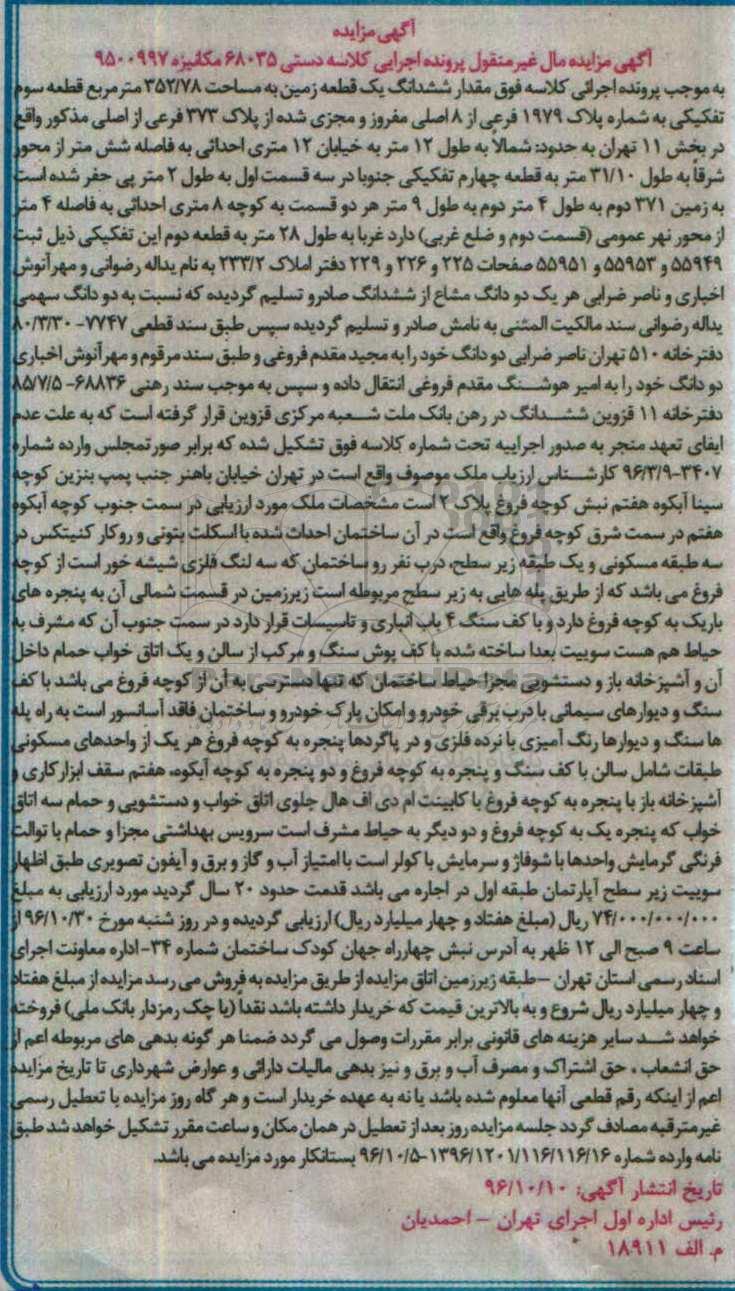 آگهی مزایده
آگهی مزایده مال غیر منقول پرونده اجرایی کلاسه دستی ۶۸۰۳۵ مکانیزه ۹۵۰۰۹۹۷
به موجب پرونده اجرائی کلاسه فوق مقدار ششدانگ یک قطعه زمین به مساحت ۳۵۲/۷۸ متر مربع قطعه سوم
تفکیکی به شماره پلاک ۱۹۷۹ فرعی از ۸ اصلی مفروز و مجزی شده از پلاک ۳۷۳ فرعی از اصلی مذکور واقع
در بخش ۱۱ تهران به حدود: شمالاً به طول ۱۲ متر به خیابان ۱۲ متری احداثی به فاصله شش متر از محور
شرقاً به طول ۳۱/۱۰ متر به قطعه چهارم تفکیکی جنوبا در سه قسمت اول به طول ۲ متر پی حفر شده است
به زمین ۳۷۱ دوم به طول ۴ متر دوم به طول ۹ متر هر دو قسمت به کوچه ۸ متری احداثی به فاصله ۴ متر
از محور نهر عمومی (قسمت دوم و ضلع غربی) دارد غربا به طول ۲۸ متر به قطعه دوم این تفکیکی ذیل ثبت
۵۵۹۴۹ و ۵۵۹۵۳ و ۵۵۹۵۱ صفحات ۲۲۵ و ۲۲۶ و ۲۲۹ دفتر املاک ۲۳۳/۲ به نام یداله رضوانی و مهرآنوش
اخباری و ناصر ضرابی هر یک دو دانگ مشاع از ششدانگ صادر و تسلیم گردیده که نسبت به دو دانگ سهمی
یداله رضوانی سند مالکیت المثنی به نامش صادر و تسلیم گردیده سپس طبق سند قطعی ۷۷۴۷- ۸۰/۳/۳۰
دفترخانه ۵۱۰ تهران ناصر ضرابی دو دانگ خود را به مجید مقدم فروغی و طبق سند مرقوم و مهرآنوش اخباری
دو دانگ خود را به امیر هوشنگ مقدم فروغی انتقال داده و سپس به موجب سند رهنی ۶۸۸۳۶- ۸۵/۷/۵
دفترخانه ۱۱ قزوین ششدانگ در رهن بانک ملت شعبه مرکزی قزوین قرار گرفته است که به علت عدم
ایفای تعهد منجر به صدور اجراییه تحت شماره کلاسه فوق تشکیل شده که برابر صورتمجلس وارده شماره
۳۴۰۷-۹۶/۳/۹ کارشناس ارزیاب ملک موصوف واقع است در تهران خیابان باهنر جنب پمپ بنزین کوچه
سینا آبکوه هفتم نبش کوچه فروغ پلاک ۲ است مشخصات ملک مورد ارزیابی در سمت جنوب کوچه آبکوه
هفتم در سمت شرق کوچه فروغ واقع است در آن ساختمان احداث شده با اسکلت بتونی و روکار کنیتکس در
سه طبقه مسکونی و یک طبقه زیر سطح، درب نفر رو ساختمان که سه لنگ فلزی شیشه خور است از کوچه
فروغ می باشد که از طریق پله هایی به زیر سطح مربوطه است زیرزمین در قسمت شمالی آن به پنجره های
باریک به کوچه فروغ دارد و با کف سنگ ۴ باب انباری و تاسیسات قرار دارد در سمت جنوب آن که مشرف به
حیاط هم هست سوییت بعدا ساخته شده با کف پوش سنگ و مرکب از سالن و یک اتاق خواب حمام داخل
آن و آشپزخانه باز و دستشویی مجزا حیاط ساختمان که تنها دسترسی به آن از کوچه فروغ می باشد با کف
سنگ و دیوارهای سیمانی با درب برقی خودرو و امکان پارک خودرو و ساختمان فاقد آسانسور است به راه پله
ها سنگ و دیوارها رنگ آمیزی با نرده فلزی و در پاگردها پنجره به کوچه فروغ هر یک از واحدهای مسکونی
طبقات شامل سالن با کف سنگ و پنجره به کوچه فروغ و دو پنجره به کوچه آبکوه، هفتم سقف ابزارکاری و
آشپزخانه باز با پنجره به کوچه فروغ با کابینت ام دی اف هال جلوی اتاق خواب و دستشویی و حمام سه اتاق
خواب که پنجره یک به کوچه فروغ و دو دیگر به حیاط مشرف است سرویس بهداشتی مجزا و حمام با توالت
فرنگی گرمایش واحدها با شوفاژ و سرمایش با کولر است با امتیاز آب و گاز و برق و آیفون تصویری طبق اظهار
سوییت زیر سطح آپارتمان طبقه اول در اجاره می باشد قدمت حدود ۲۰ سال گردید مورد ارزیابی به مبلغ
۷۴/۰۰۰/۰۰۰/۰۰۰ ریال (مبلغ هفتاد و چهار میلیارد ریال) ارزیابی گردیده و در روز شنبه مورخ ۹۶/۱۰/۳۰ از
ساعت ۹ صبح الی ۱۲ ظهر به آدرس نبش چهارراه جهان کودک ساختمان شماره ۳۴- اداره معاونت اجرای
اسناد رسمی استان تهران –طبقه زیرزمین اتاق مزایده از طریق مزایده به فروش می رسد مزایده از مبلغ هفتاد
و چهار میلیارد ریال شروع و به بالاترین قیمت که خریدار داشته باشد نقداً (یا چک رمزدار بانک ملی) فروخته
خواهد شد سایر هزینه های قانونی برابر مقررات وصول می گردد ضمنا هر گونه بدهی های مربوطه اعم از
حق انشعاب ، حق اشتراک و مصرف آب و برق و نیز بدهی مالیات دارائی و عوارض شهرداری تا تاریخ مزایده
اعم از اینکه رقم قطعی آنها معلوم شده باشد یا نه به عهده خریدار است و هر گاه روز مزایده با تعطیل رسمی
غیرمترقبه مصادف گردد جلسه مزایده روز بعد از تعطیل در همان مکان و ساعت مقرر تشکیل خواهد شد طبق
نامه وارده شماره ۱۳۹۶/۱۲۰۱/۱۱۶/۱۱۶/۱۶-۹۶/۱۰/۵ بستانکار مورد مزایده می باشد.
تاریخ انتشار آگهی: ۹۶/۱۰/۱۰
رئیس اداره اول اجرای تهران – احمدیان
م. الف ۱۸۹۱۱